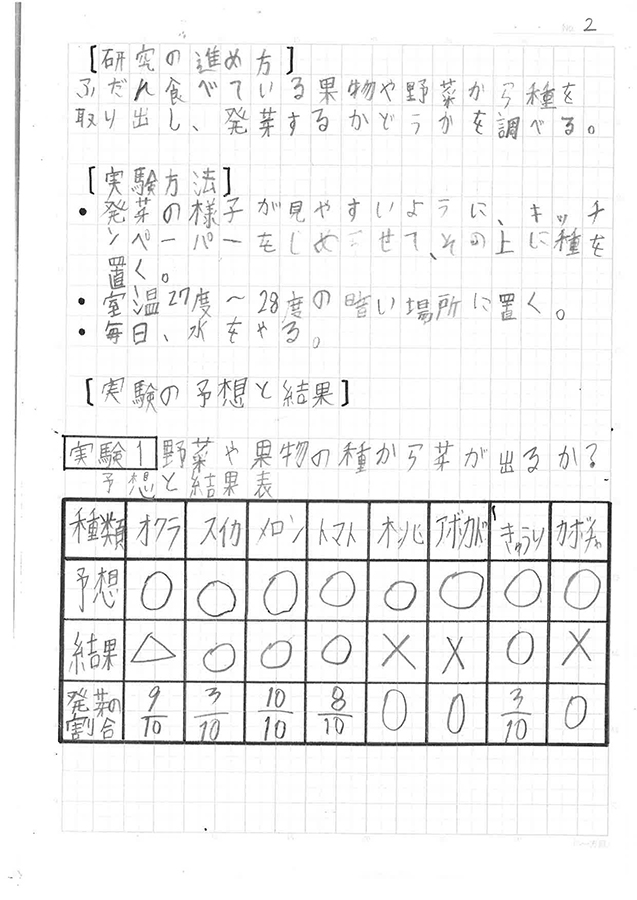 No. 2
[研究の進め方]
ふだん食べている果物や野菜から種を
取り出し、発芽するかどうかを調べる。
[実験方法]
・発芽の様子が見やすいように、キッチ
ンペーパーをしめらせて、その上に種を
置く。
・室温27度〜28度の暗い場所に置く。
・毎日、水をやる。
[実験の予想と結果]
実験1 野菜や果物の種から芽が出るか?
予想と結果表
種類 オクラ スイカ メロン トマト アボカド きゅうり カボチャ
予想 ○ ○ ○ ○ ○ ○ ○ ○
結果 △ ○ ○ ○ × × ○ ×
発芽の割合 9/10 3/10 10/10 8/10 0 0 3/10 0